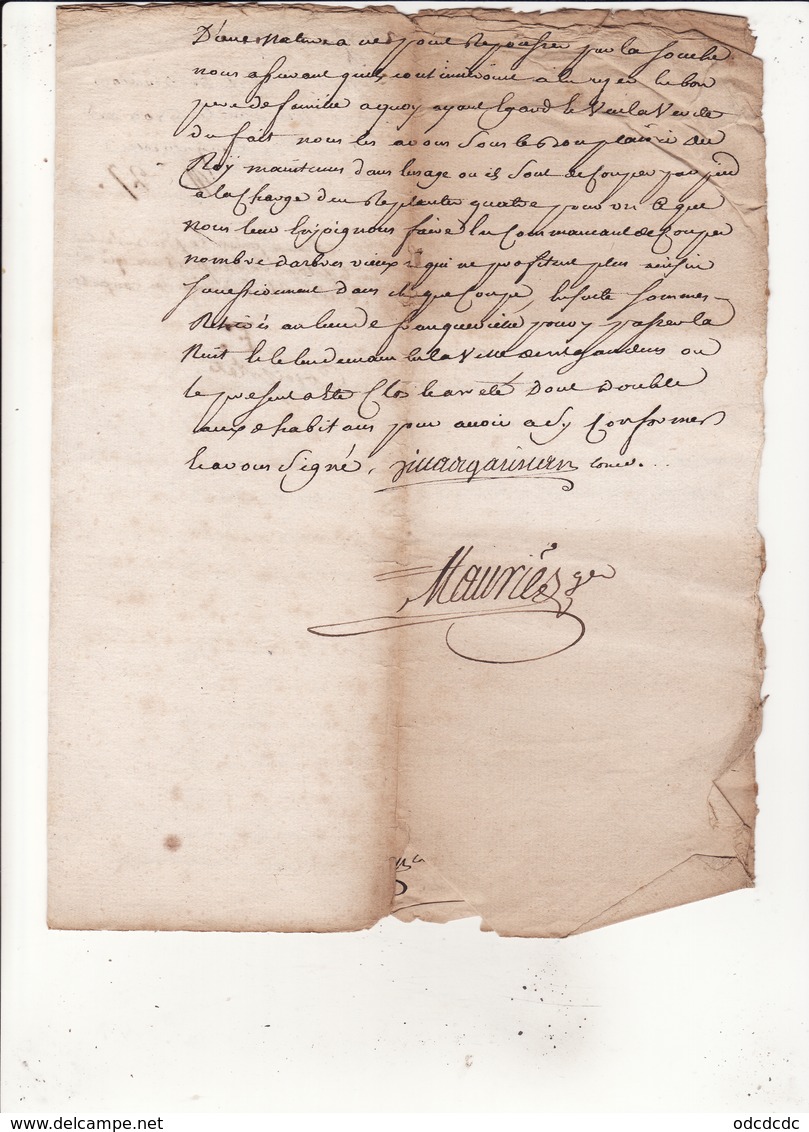 D'une Nature a ne point Repousser par la souche
nous assurant quils continueront a en user en bon
pere de famille a quoy ayant Egard et Veu la Verité
du fait nous les avons sous le bon plaisir du
Roÿ maintenus dans lusage ou ils sont de Couper par pied
a la Charge den Replanter quatre pour un Et que
nous leur Enjoignons faire En Commancant de Couper
nombre darbres vieux qui ne profitent plus
successivement dans chaque Coupe, Ensuite sommes
Retirés au lieu de franqueville pour y passer la
Nuit Et le lendemain En la Ville de ou
le present a Esté Clos Et aresté Dont Double
auxd habitans pour avoir a sy Conformer
Et avons Signé,
Mauriés ger
odcdcdc